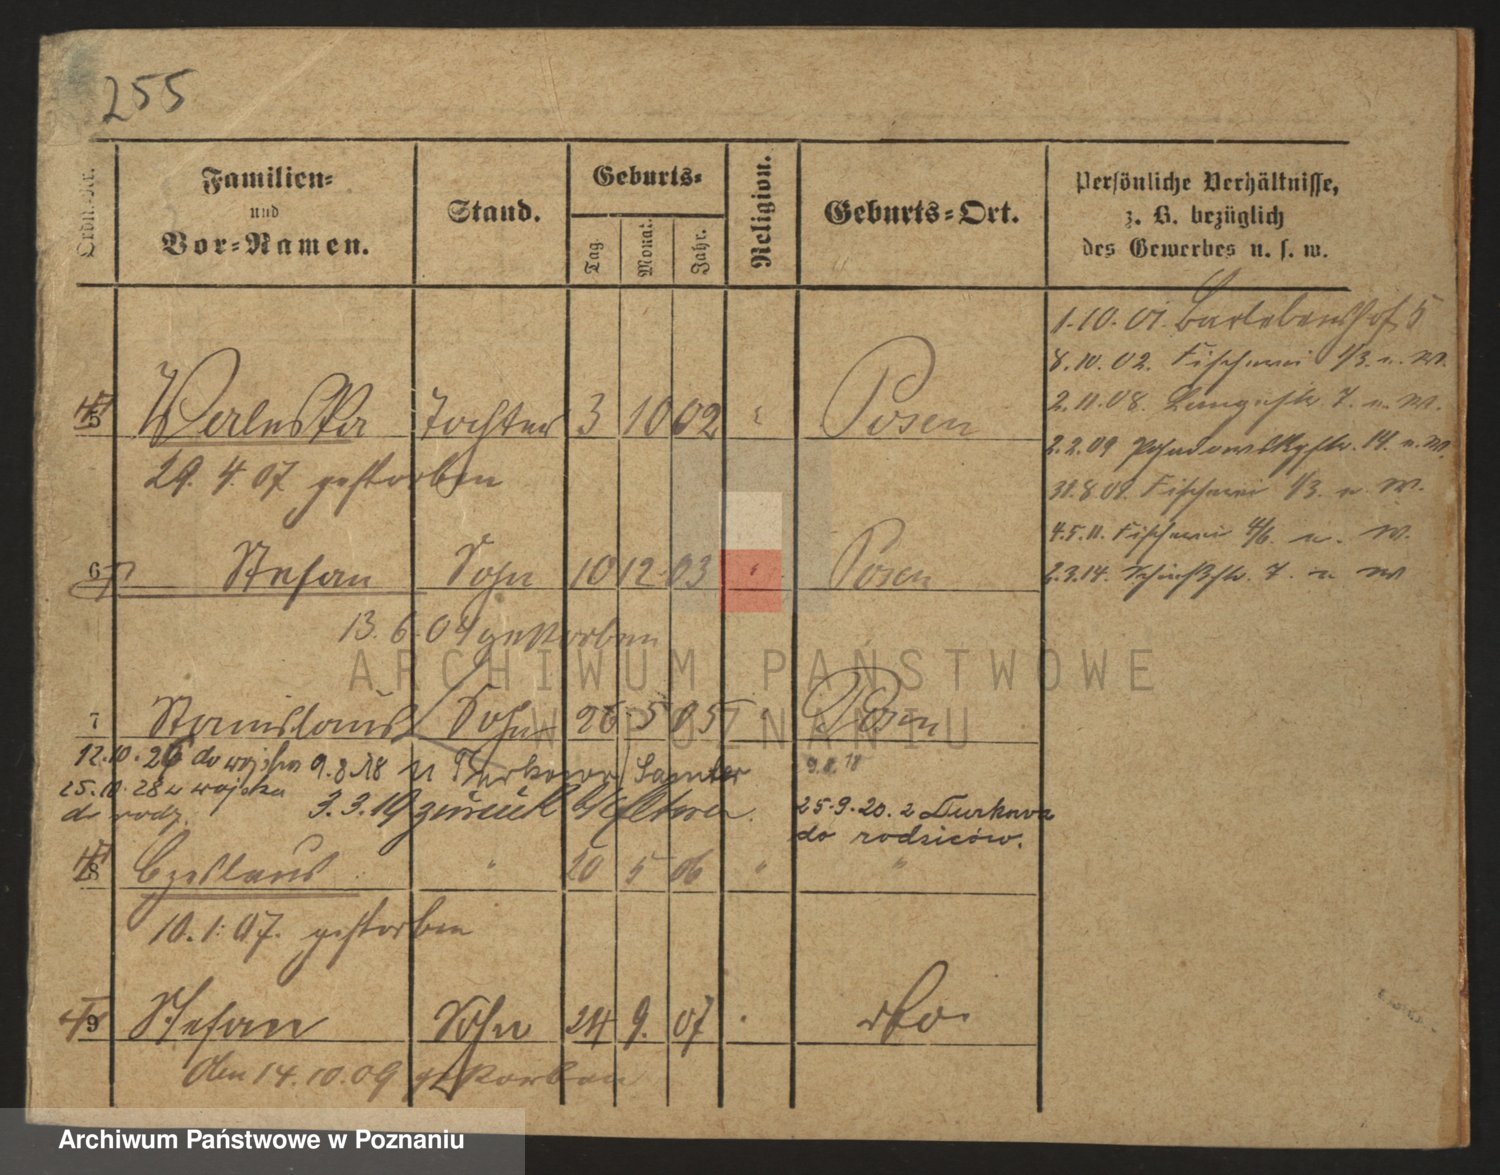 255
Ordn.-Nr.
Familien-
und
Vor-Namen.
Stand.
Geburts-
Tag.
Monat.
Jahr.
Religion.
Geburts-Ort.
Persönliche Verhältnisse,
z. B. bezüglich
des Gewerbes u. s. w.
1.10.01. Barlebenshof 5
8.10.02. Fischerei 1/3. u. W.
2.11.08. Langestr. 7. u. W.
2.2.09 14. u. W.
31.8.09. Fischerei 1/3. u. W.
4.5.11. Fischerei 4/6. u. W.
2.3.14. Schießstr. 7. u. W
5 Waleska Tochter 3 10 02 Posen
29. 4. 07 gestorben
6 Stefan Sohn 10 12 03 Posen
13. 6. 04 gestorben
7 Stanislaus Sohn 26 5 05 Posen
12.10.26 do wojska 9.8.18 n Turkowo / Samter 9.8.18
25.10.28 z wojska
do rodz. 3.3.19 zurück Eltern.
25.9.20. z Turkowa
do rodziców.
8 Czeslaus " 20 5 06 " "
10.1.07. gestorben
9 Stefan Sohn 24 9. 07
den 14.10.09 gestorben
ARCHIWUM PAŃSTWOWE
W POZNANIU
Archiwum Państwowe w Poznaniu